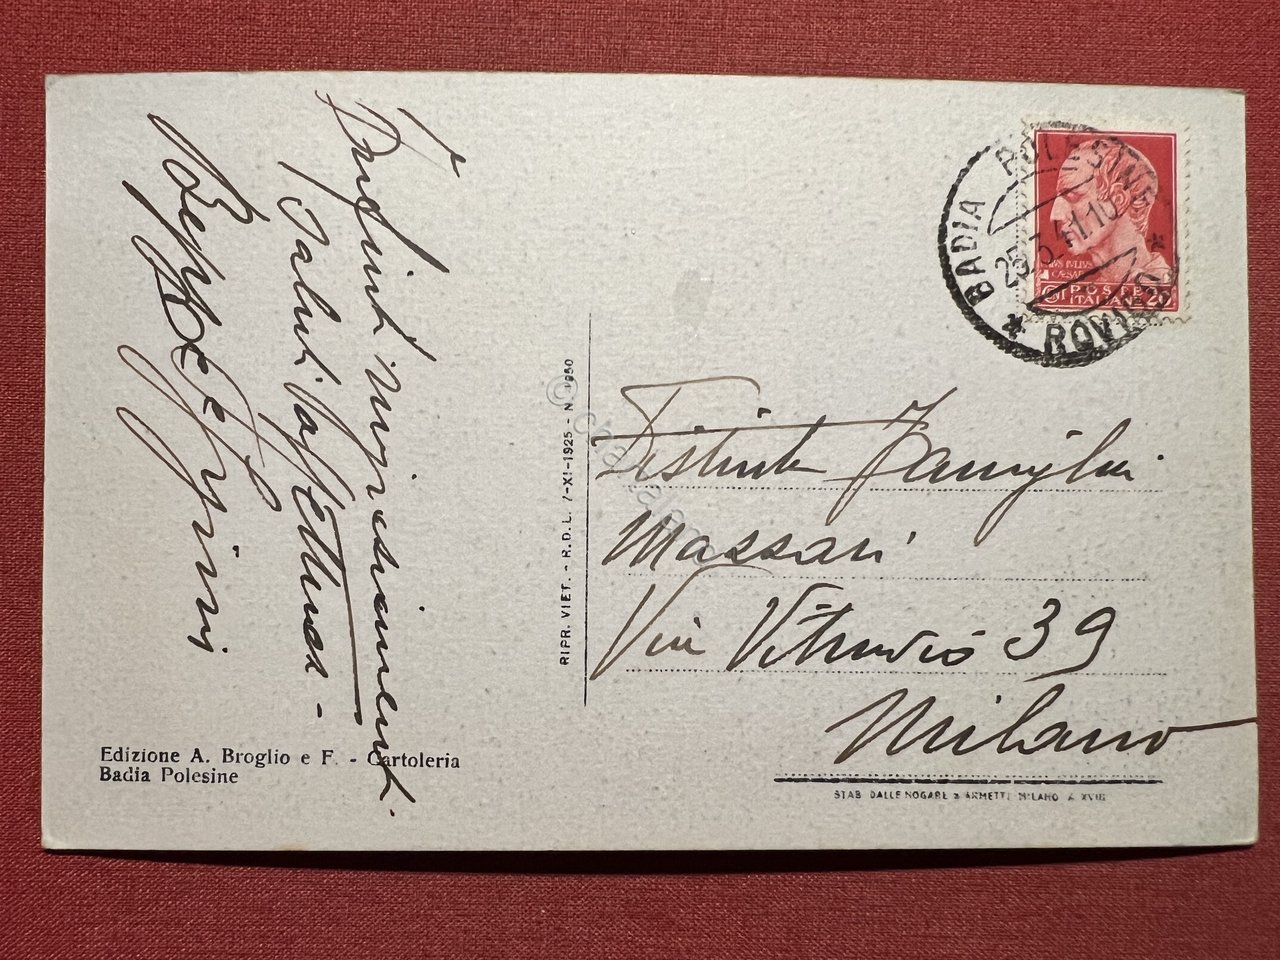 Infiniti ringraziamenti
Saluti affettuosi -
Beppe e
Edizione A. Broglio e F. - Cartoleria
Badia Polesine
RIPR. VIET. - R.D.L. 7-XI-1925 - N. 1950
BADIA POLESINE
25.3.41.10
* ROVIGO *
IVLIVS
CAESAR
POSTE
ITALIANE
20
Distinta Famiglia
Massari
Via Vitruvio 39
Milano
STAB. DALLE NOGARE & ARMETTI MILANO A. XVIII